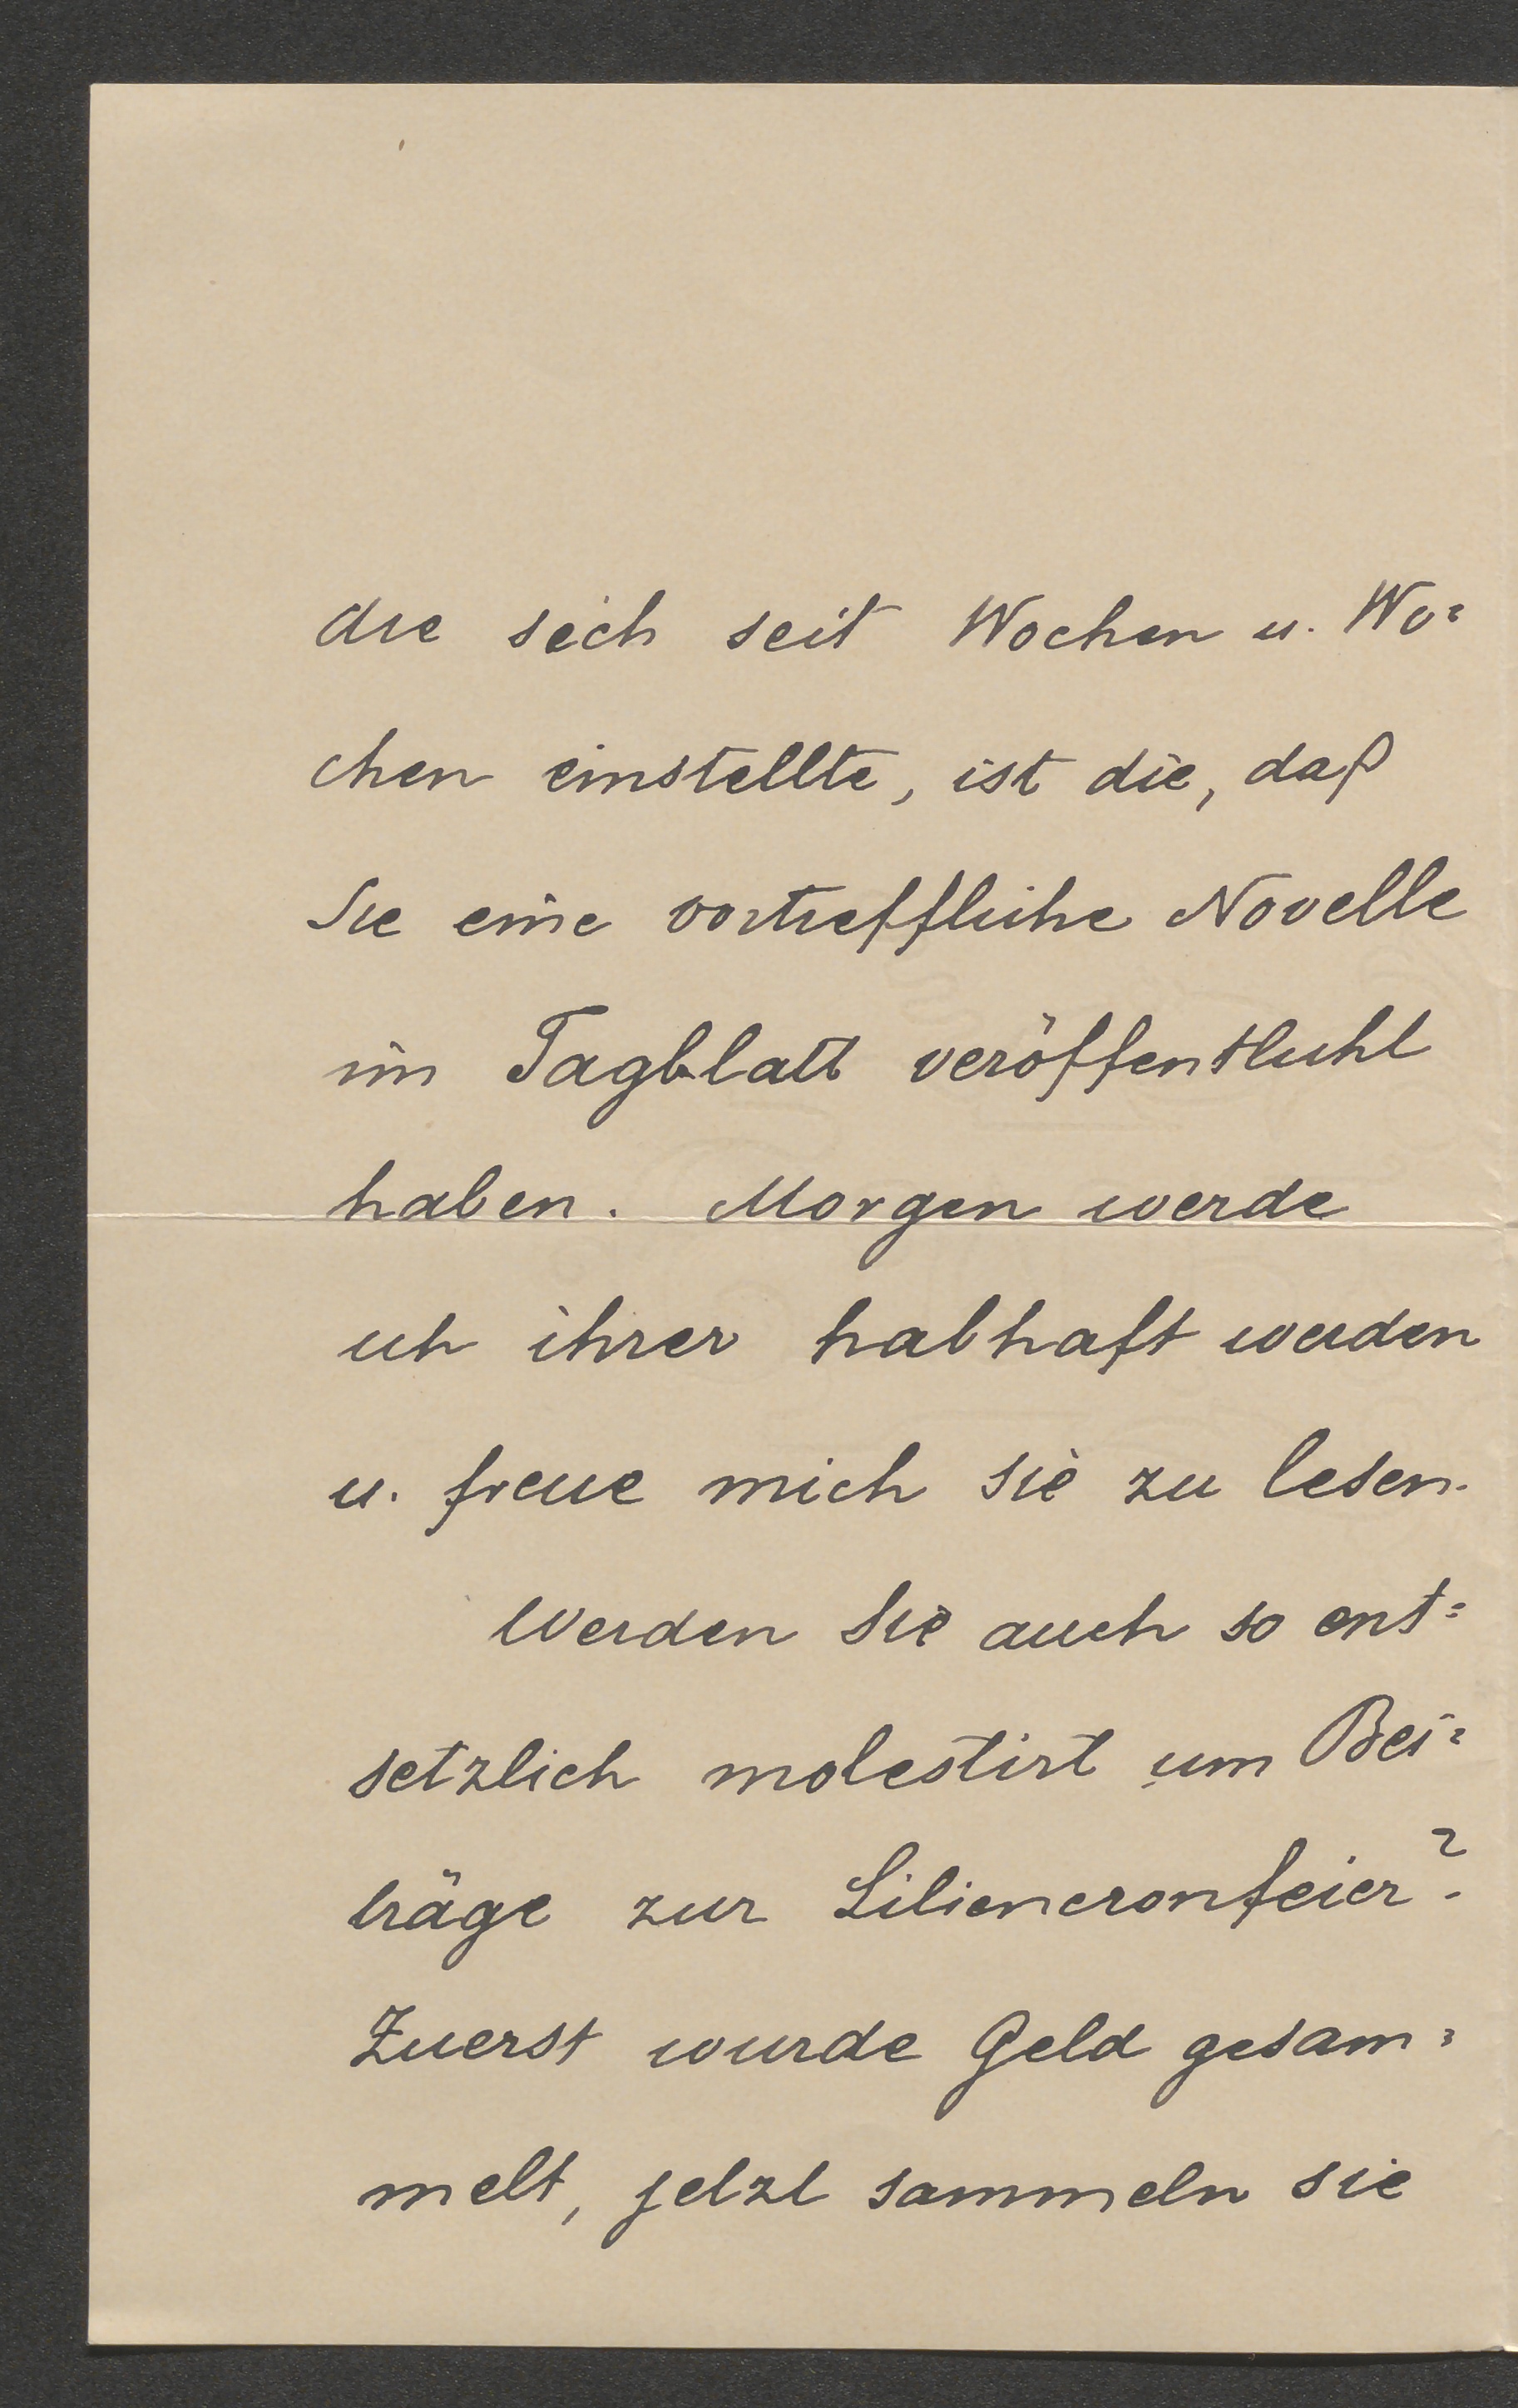 die sich seit Wochen u. Wo=
chen einstellte, ist die, daß
Sie eine vortreffliche Novelle
im Tagblatt veröffentlicht
haben. Morgen werde
ich ihrer habhaft werden
u. freue mich sie zu lesen.
Werden Sie auch so ent=
setzlich molestirt um Bei=
träge zur Liliencronfeier?
Zuerst wurde Geld gesam=
melt, jetzt sammeln sie